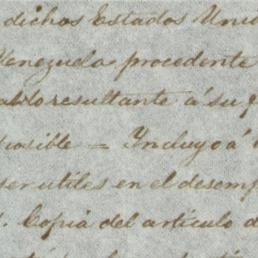 dichos Estados Unid
Venezuela procedente
resultante á su
posible = Incluyo á
ser utiles en el desem
Copia del artículo d